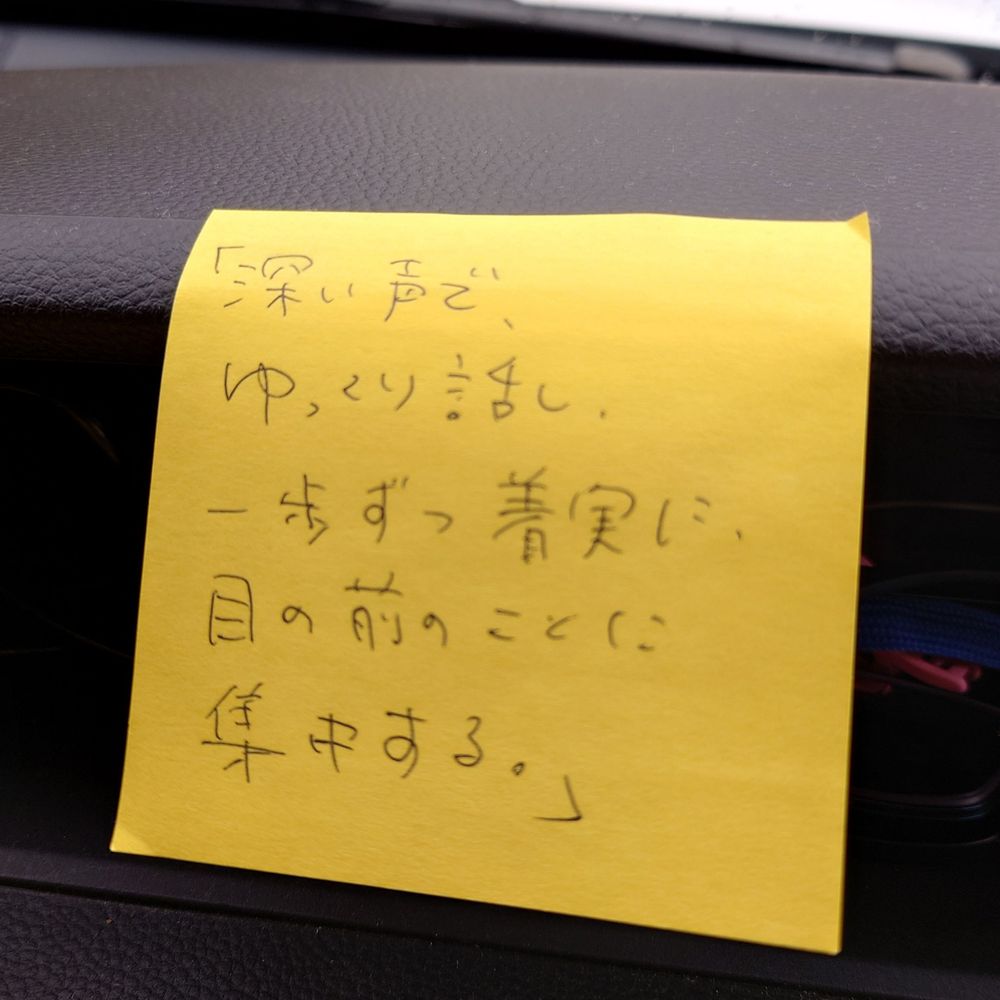 「深い声で、
ゆっくり話し、
一歩ずつ着実に、
目の前のことに
集中する。」